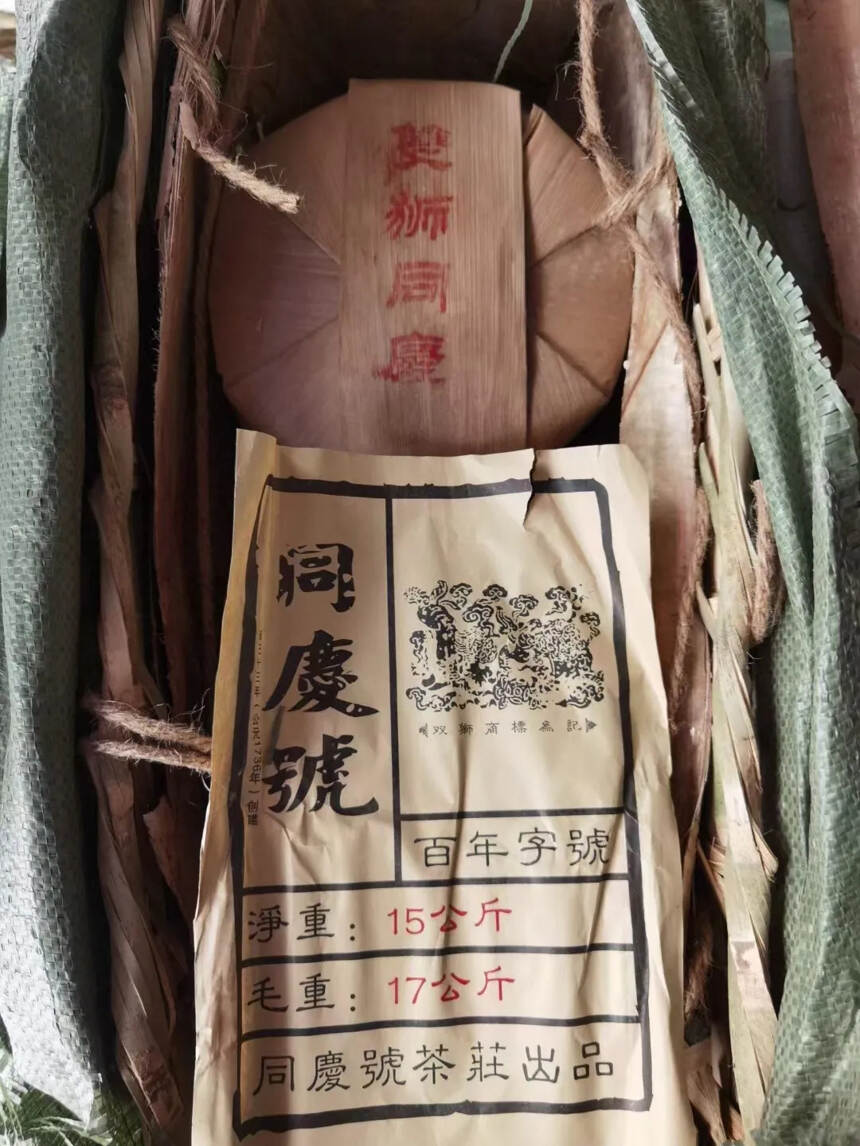 雙狮同慶
同慶號
年（公元1736年）创建
双獅商標為記
百年字號
淨重：15公斤
毛重：17公斤
同慶號茶莊出品